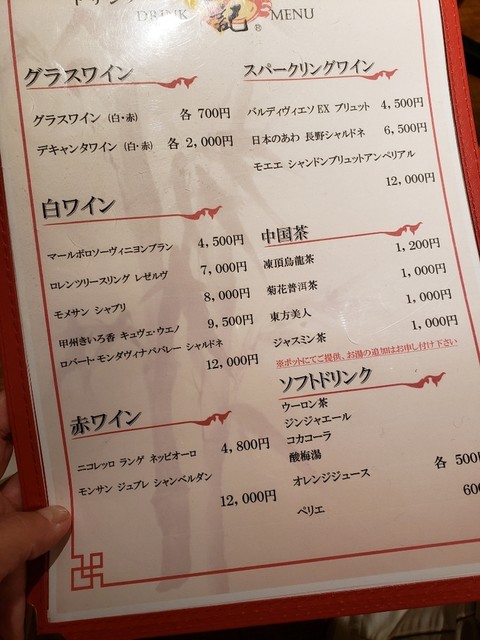 DRINK 記 ® MENU
グラスワイン
グラスワイン (白・赤) 各 700円
デキャンタワイン (白・赤) 各 2,000円
白ワイン
マールボロソーヴィニヨンブラン 4,500円
ロレンツリースリング レゼルヴ 7,000円
モメサン シャブリ 8,000円
甲州きいろ香 キュヴェ・ウエノ 9,500円
ロバート・モンダヴィナパバレー シャルドネ
12,000円
赤ワイン
ニコレッロ ランゲ ネッビオーロ 4,800円
モンサン ジュブレ シャンベルダン
12,000円
スパークリングワイン
バルディヴィエソ EX ブリュット 4,500円
日本のあわ 長野シャルドネ 6,500円
モエエ シャンドンブリュットアンペリアル
12,000円
中国茶
凍頂烏龍茶 1,200円
菊花普洱茶 1,000円
東方美人 1,000円
ジャスミン茶 1,000円
※ポットにてご提供、お湯の追加はお申し付け下さい
ソフトドリンク
ウーロン茶
ジンジャエール
コカコーラ
酸梅湯
オレンジジュース 各 500円
ペリエ 600